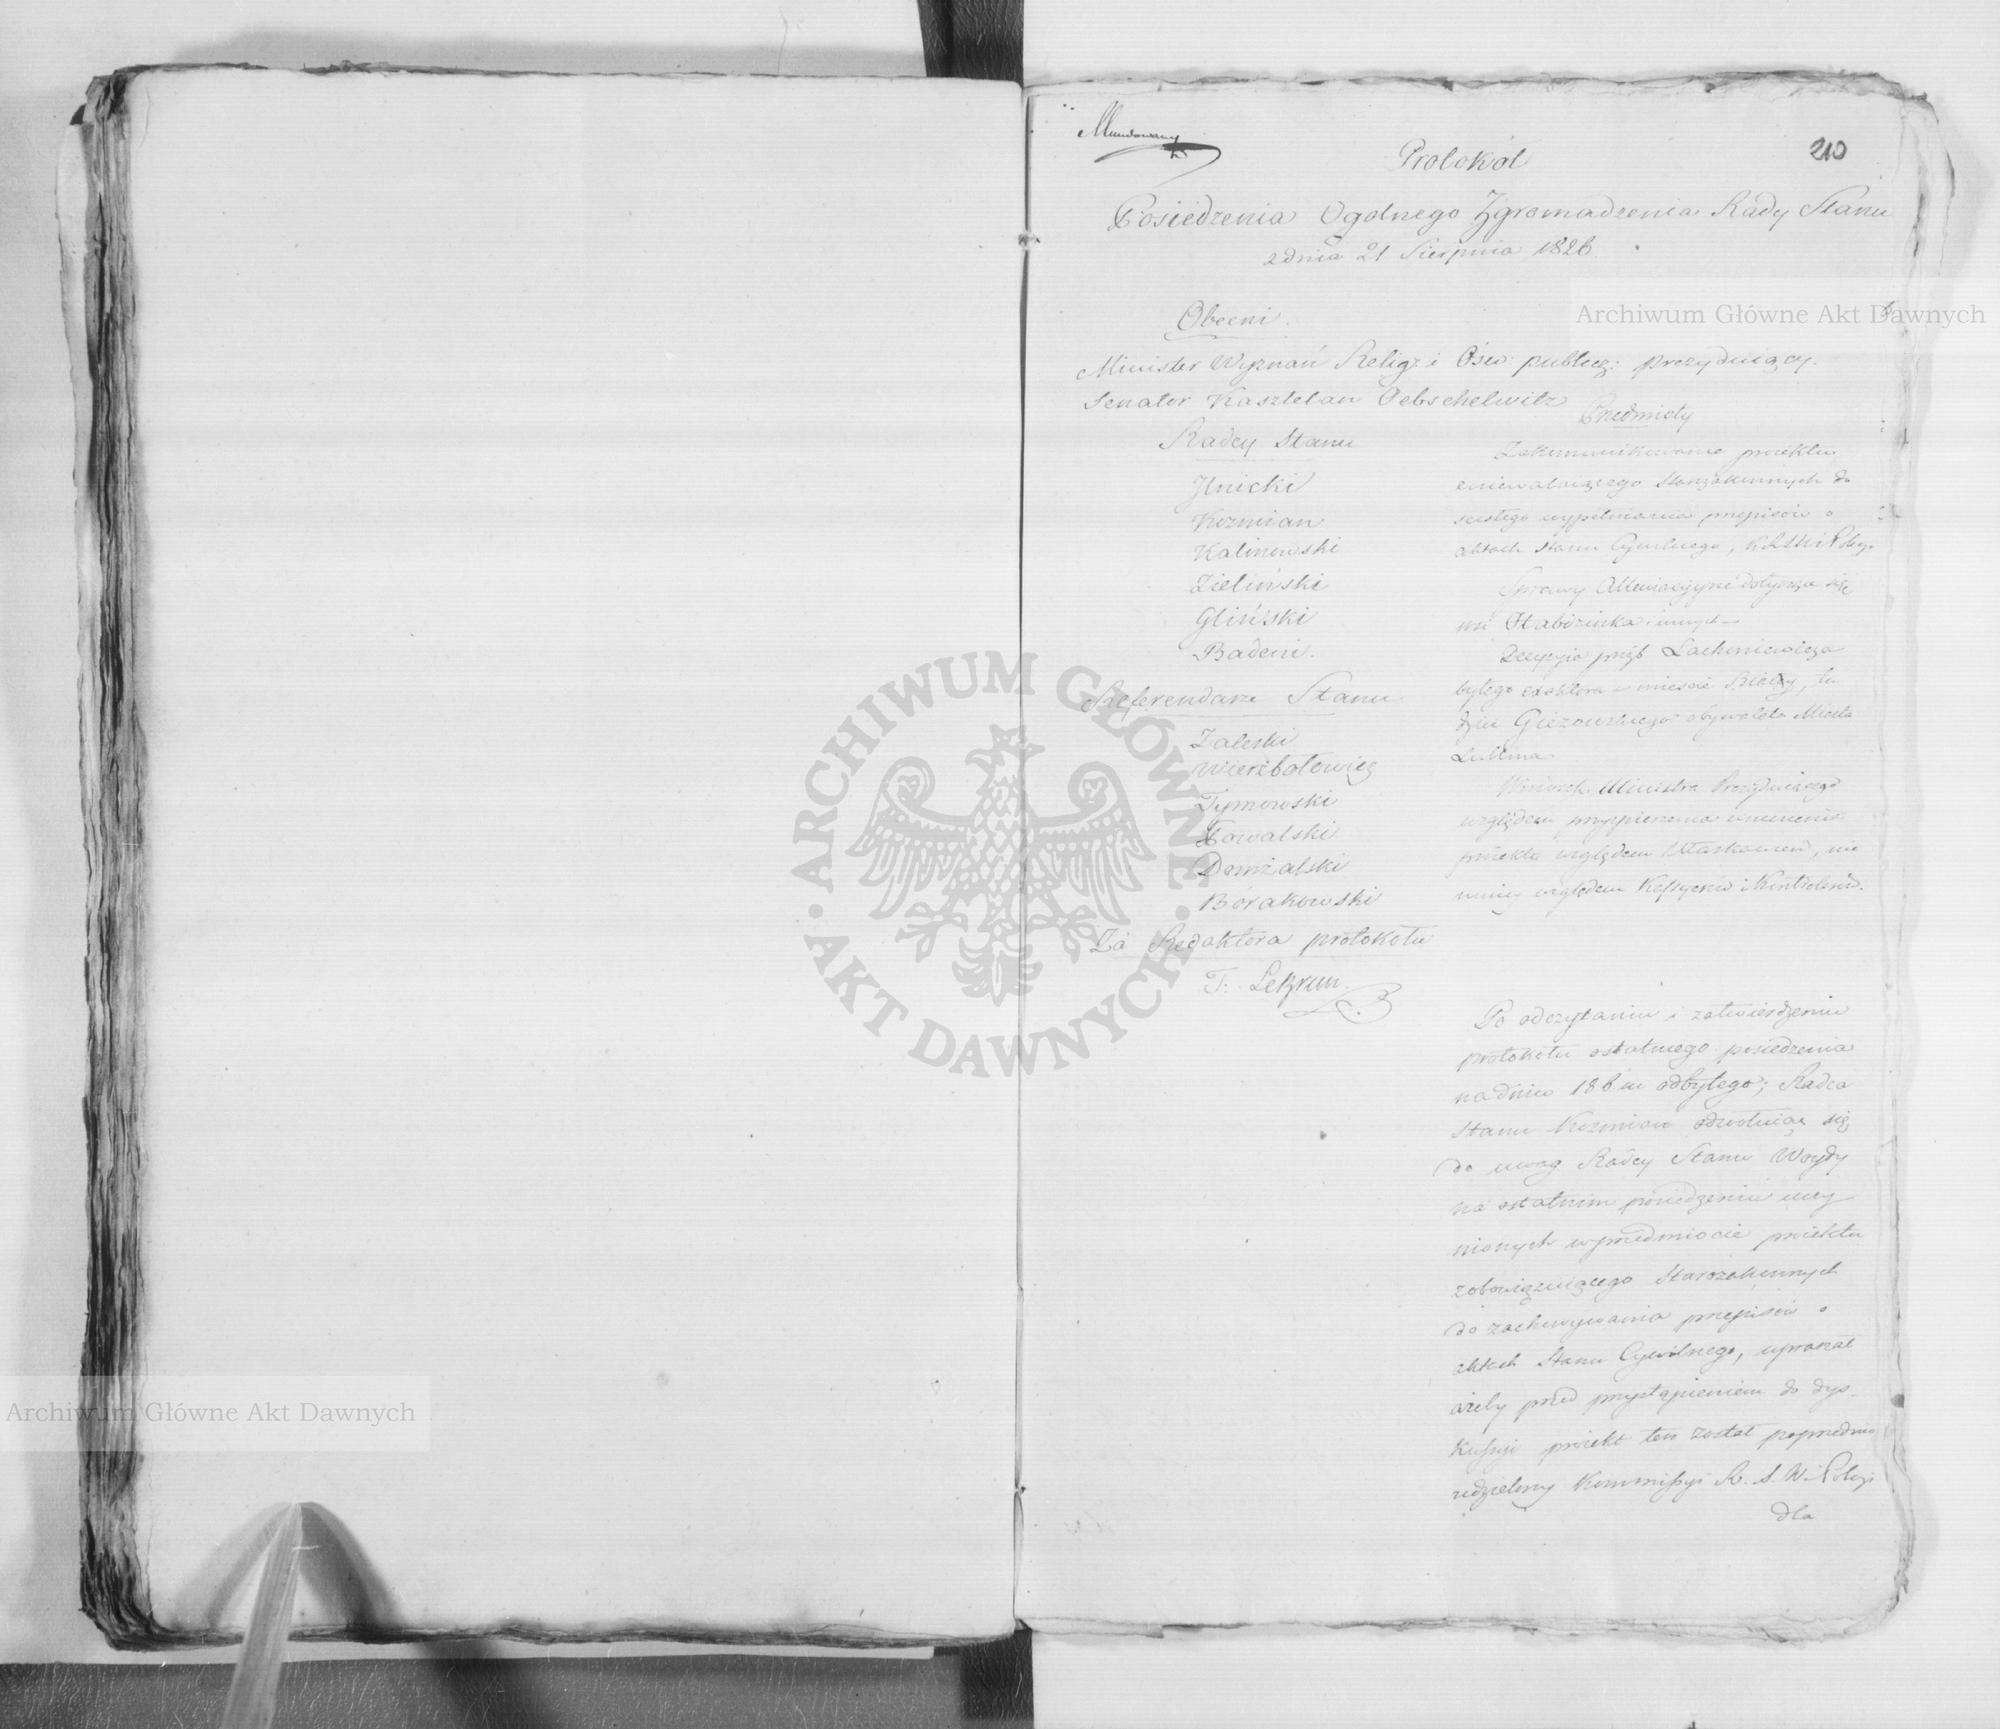 Mundowany
210
Protokół
Posiedzenia Ogolnego Zgromadzenia Rady Stanu
z dnia 21 Sierpnia 1826.
Archiwum Główne Akt Dawnych
Obecni.
Minister Wyznań Relig: i Ośw: publicz: prezyduiący.
Senator Kasztelan Oebschelwitz
Radcy Stanu
Jlnicki
Kozmian
Kalinowski
Zieliński
Gliński
Badeni.
Referendarze Stanu
Zaleski
Wierzbołowicz
Tymowski
Kowalski
Domżalski
Borakowski
Za Redaktora protokołu
F. Lebrun.
Przedmioty
Zakomunikowanie proiektu
zniewalaiącego Starozakonnych do
scisłego wypełniania przepisow o
aktach Stanu Cywilnego, K.R.S.W. i Policyi.
Sprawy Allewiacyjne dotyczące się
i innych
Decyzyia przez Lachniewicza
byłego exaktora w miescie Białey, tu
dzież obywatela Miasta
Lublina
Wniosek Ministra Prezyduiącego
względem przyspieszenia wniesienia
proiektu względem, nie
mniey względem i
Po odczytaniu i zatwierdzeniu
protokołu ostatniego posiedzenia
na dniu 18 b. m. odbytego; Radca
Stanu Kozmian odwołuiąc się
do uwag Radcy Stanu Woydy
na ostatnim posiedzeniu uczy
nionych w przedmiocie proiektu
zobowięzuiącego Starozakonnych
do zachowywania przepisow o
aktach Stanu Cywilnego, upraszał
ażeby przed przystąpieniem do dys-
kussyi proiekt ten został poprzednio
udzielony Kommissyi R. S. W. i Policyi
dla
Archiwum Główne Akt Dawnych
ARCHIWUM GŁÓWNE · AKT DAWNYCH ·